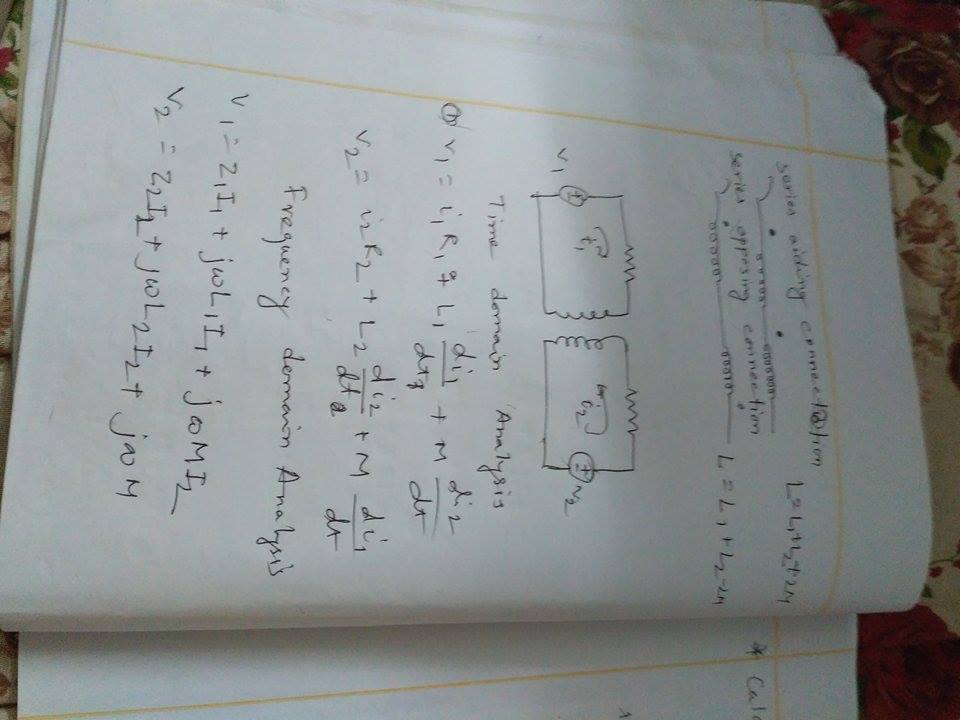 series aiding connection L=L₁+L₂+2M
series opposing connection
L = L₁ + L₂-2M
* Calc
V₁ i₁ i₂ V₂
Time domain Analysis
① V₁ = i₁R₁ + L₁ di₁/dt + M di₂/dt
V₂ = i₂R₂ + L₂ di₂/dt + M di₁/dt
Frequency domain Analysis
V₁ = Z₁I₁ + jωL₁I₁ + jωMI₂
V₂ = Z₂I₂ + jωL₂I₂ + jωM